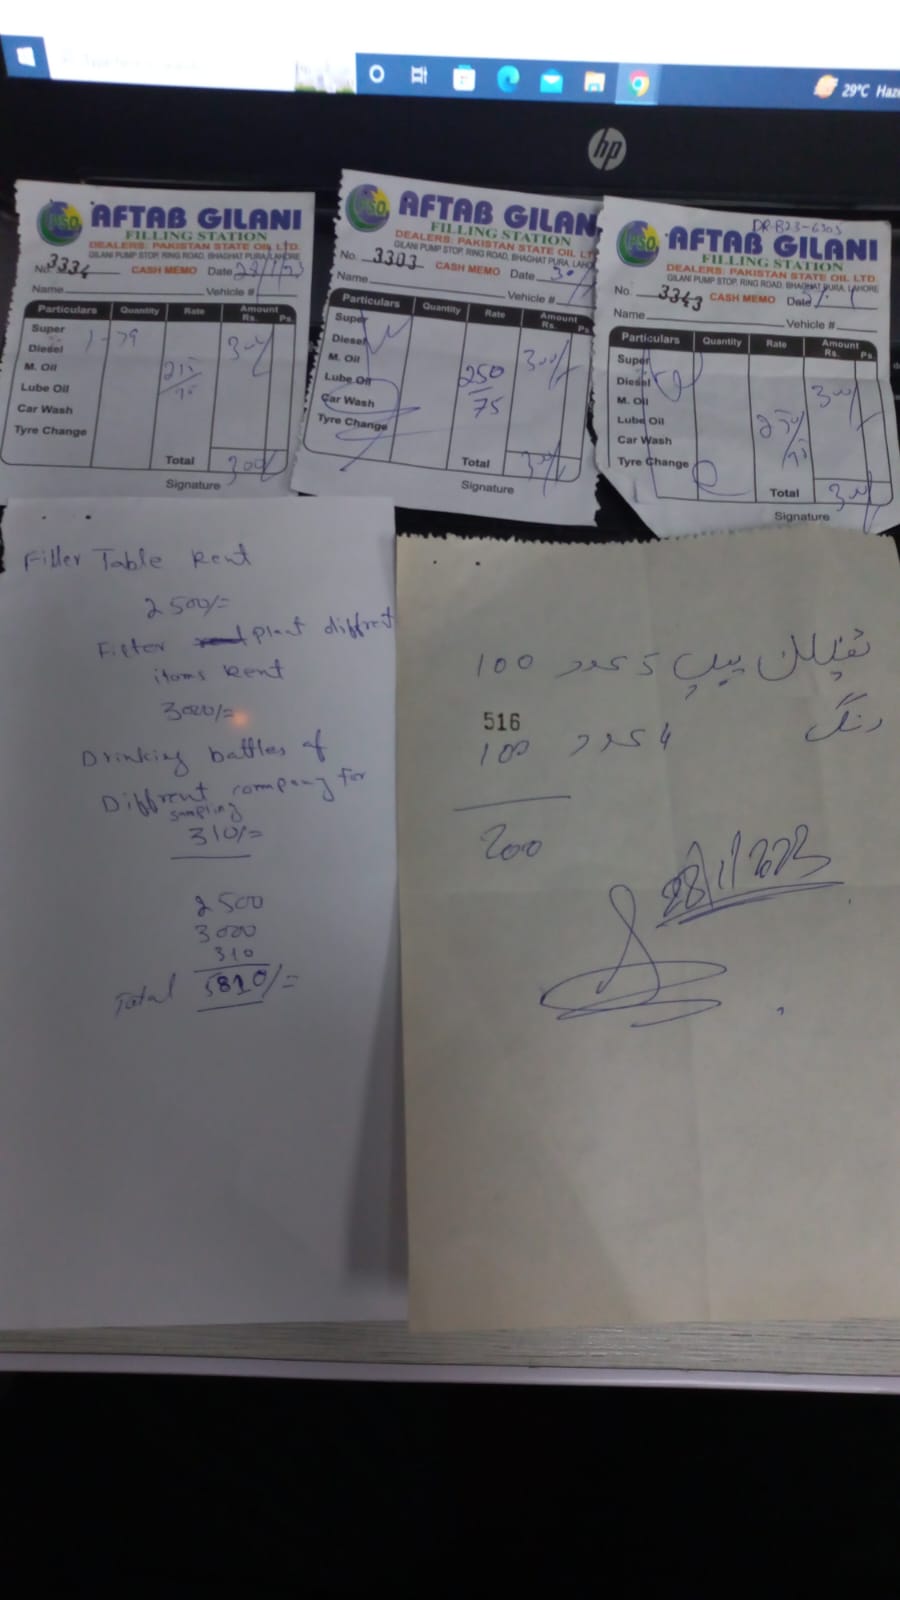 29°C Haze
hp
PSO
AFTAB GILANI
FILLING STATION
DEALERS: PAKISTAN STATE OIL LTD.
GILANI PUMP STOP, RING ROAD, BHAGHAT PURA, LAHORE
No. 3334 CASH MEMO Date
Name Vehicle #
Particulars Quantity Rate Amount Rs. Ps.
Super
Diesel
M. Oil
Lube Oil
Car Wash
Tyre Change
Total 300/
Signature
PSO
AFTAB GILAN
FILLING STATION
DEALERS: PAKISTAN STATE OIL LT
GILANI PUMP STOP, RING ROAD, BHAGHAT PURA, LAHO
No. 3303 CASH MEMO Date
Name Vehicle #
Particulars Quantity Rate Amount Rs. Ps
Super
Diesel 300/
M. Oil
Lube Oil 250
Car Wash 75
Tyre Change
Total 300/
Signature
DR-B23-6303
PSO
AFTAB GILANI
FILLING STATION
DEALERS: PAKISTAN STATE OIL LTD.
GILANI PUMP STOP, RING ROAD, BHAGHAT PURA, LAHORE
No. 3343 CASH MEMO Date
Name Vehicle #
Particulars Quantity Rate Amount Rs. Ps
Super
Diesel
M. Oil 300/
Lube Oil
Car Wash
Tyre Change
Total 300/
Signature
Filler Table Rent
2500/=
Filter plant diffrent
items Rent
3000/=
Drinking battles of
Diffrent company for
sampling
310/=
2500
3000
310
Total 5810/=
پیپ 5 عدد 100
516
رنگ 4 عدد 100
200
28/1/2023